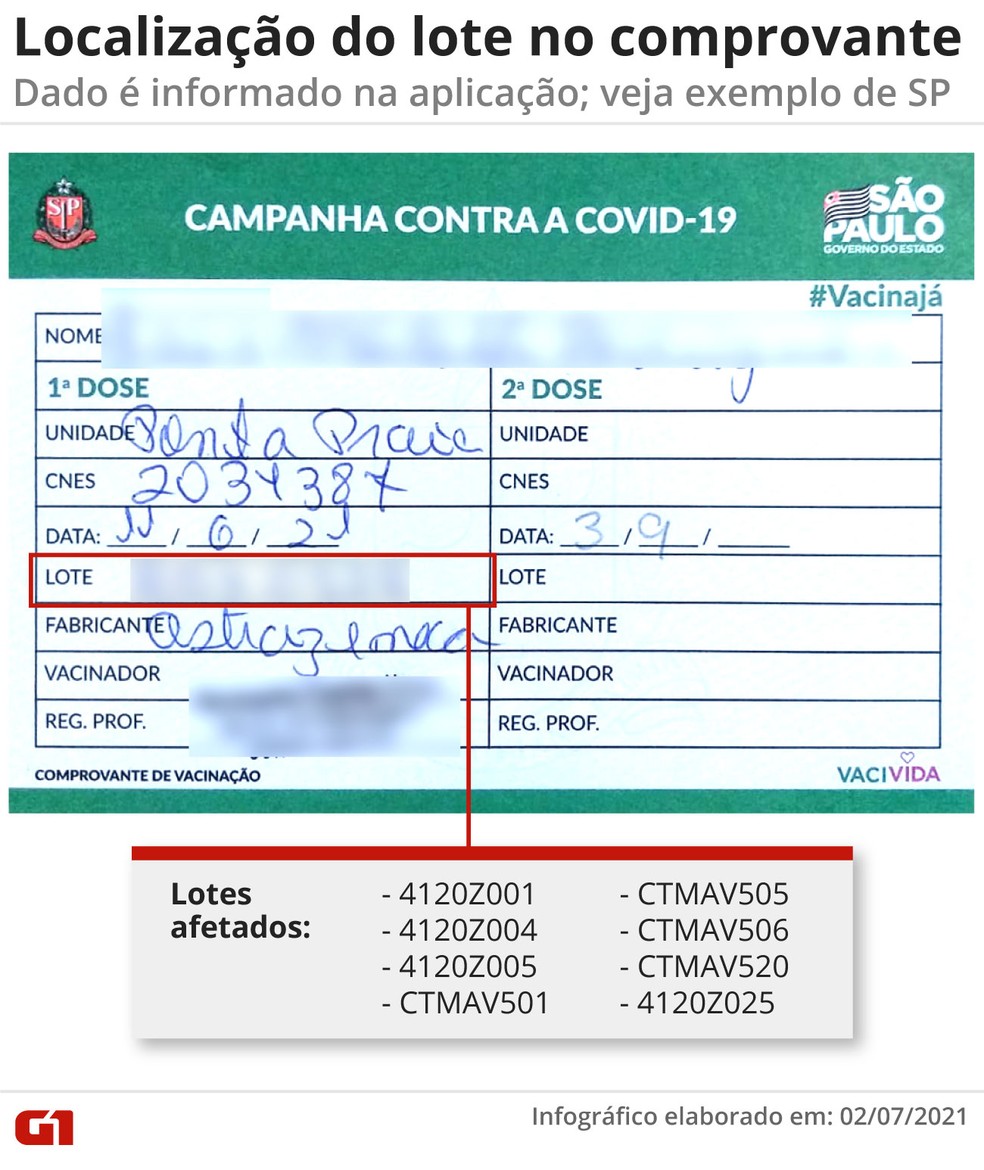 Localização do lote no comprovante
Dado é informado na aplicação; veja exemplo de SP
SP
CAMPANHA CONTRA A COVID-19
SÃO
PAULO
GOVERNO DO ESTADO
#Vacinajá
NOME
1ª DOSE
2ª DOSE
UNIDADE Ponta Praia
UNIDADE
CNES 2034387
CNES
DATA: 11 / 6 / 21
DATA: 3 / 9 /
LOTE
LOTE
FABRICANTE astrazeneca
FABRICANTE
VACINADOR
VACINADOR
REG. PROF.
REG. PROF.
COMPROVANTE DE VACINAÇÃO
VACIVIDA
Lotes
afetados:
- 4120Z001
- 4120Z004
- 4120Z005
- CTMAV501
- CTMAV505
- CTMAV506
- CTMAV520
- 4120Z025
G1
Infográfico elaborado em: 02/07/2021